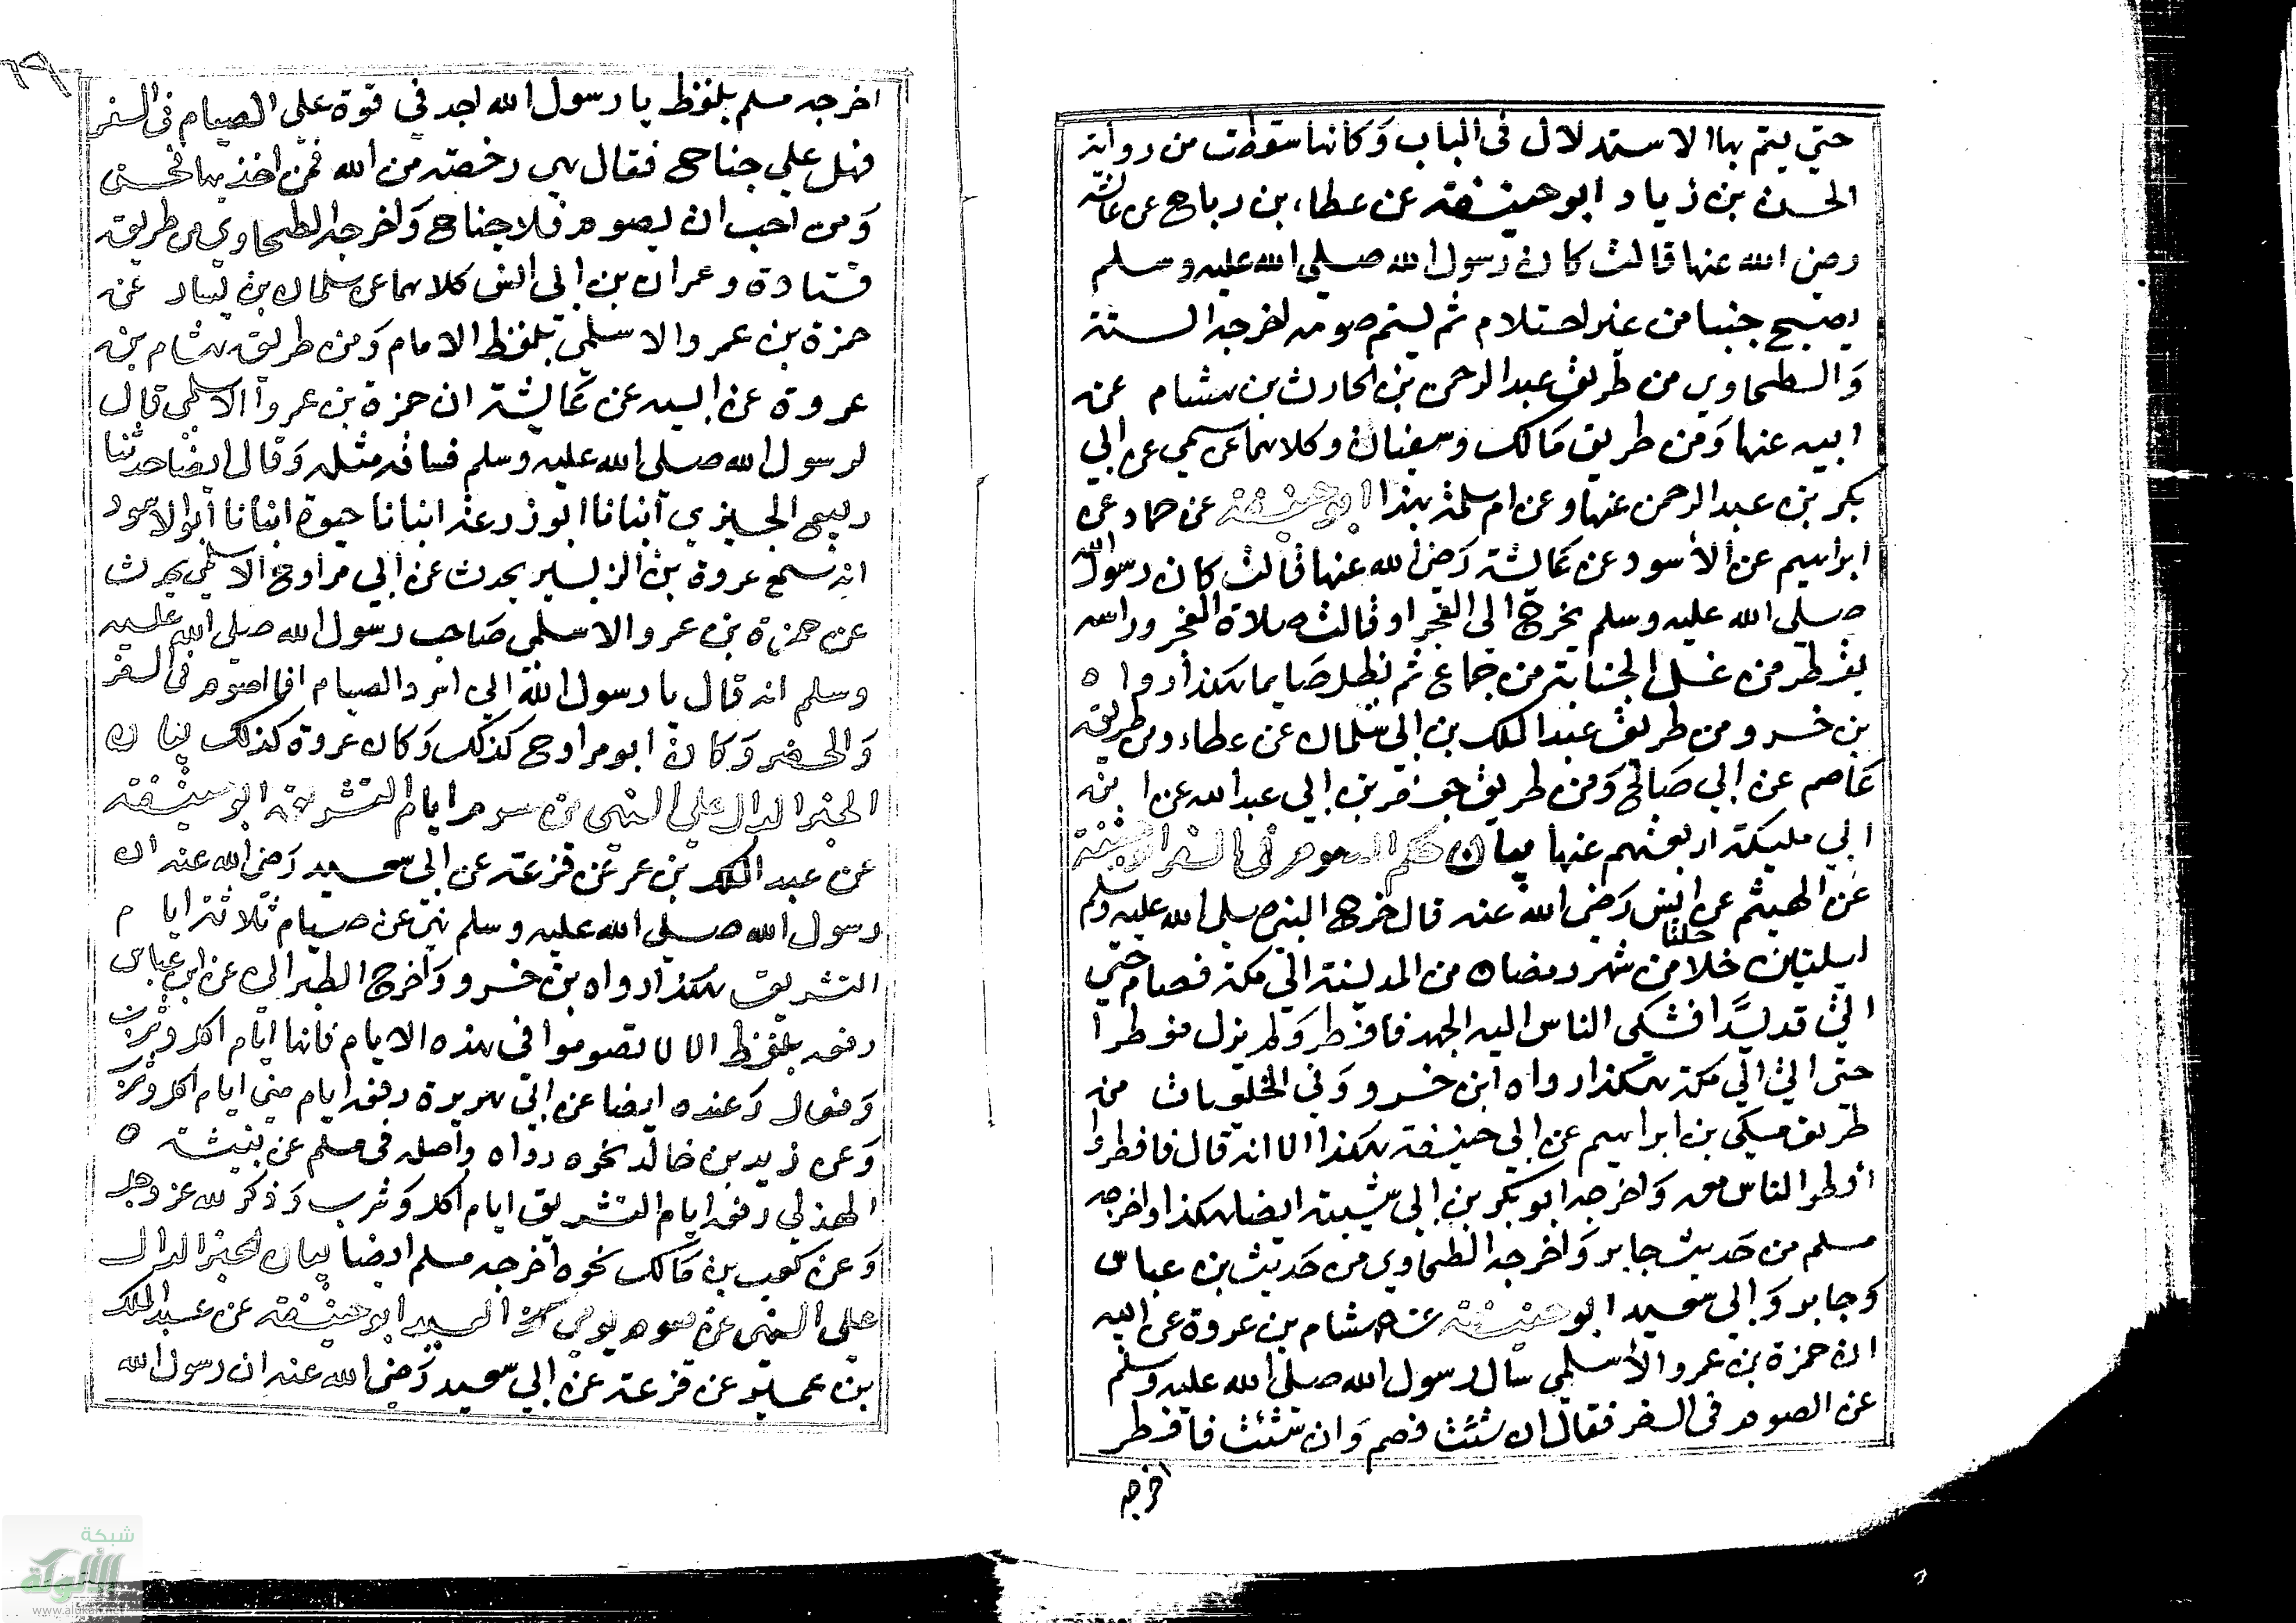 حتي يتم بها الاستدلال في الباب وكانها سقطت من رواية
الحسن بن زياد ابوحنيفة عن عطاء بن رباح عن عائشة
رضي الله عنها قالت كان رسول الله صلي الله عليه وسلم
يصبح جنبا من غير احتلام ثم ليتم صومه اخرجه الستة
والطحاوي من طريق عبد الرحمن بن الحارث بن هشام عن
ابيه عنها ومن طريق مالك وسفيان وكلاهما عن سمي عن ابي
بكر بن عبد الرحمن عنها وعن ام سلمة بهذا ابوحنيفة عن حماد عن
ابراهيم عن الاسود عن عائشة رضي الله عنها قالت كان رسول الله
صلي الله عليه وسلم يخرج الي الفجر او قالت صلاة الفجر وراسه
يقطر من غسل الجنابة من جماع ثم يظل صايما هكذا رواه
بن خسرو ومن طريق عبد الملك بن ابي سلمان عن عطاء ومن طريق
عاصم عن ابي صالح ومن طريق جعفر بن ابي عبد الله عن ابن
ابي مليكة اربعتهم عنها بيان حكم الصوم في السفر ابوحنيفة
عن الهيثم عن انس رضي الله عنه قال خرج النبي صلي الله عليه وسلم
لليلتين خلتا خلا من شهر رمضان من المدينة الي مكة فصام حتي
اتي قديدا فشكي الناس اليه الجهد فافطر ولم يزل مفطرا
حتي اتي الي مكة هكذا رواه ابن خسرو وفي الخلعيات من
طريق مكي بن ابراهيم عن ابي حنيفة هكذا الا انه قال فافطروا
افطر الناس معه واخرجه ابو بكر بن ابي شيبة ايضا هكذا واخرجه
مسلم من حديث جابر واخرجه الطحاوي من حديث بن عباس
وجابر وابي سعيد ابو حنيفة عن هشام بن عروة عن ابيه
ان حمزة بن عمرو الاسلمي سال رسول الله صلي الله عليه وسلم
عن الصوم في السفر فقال ان شئت فصم وان شئت فافطر
اخرجه
٦٩
اخرجه مسلم بلفظ يا رسول الله اجد في قوة علي الصيام في السفر
فهل علي جناح فقال هي رخصة من الله فمن اخذ بها فحسن
ومن احب ان يصوم فلا جناح واخرجه الطحاوي من طريق
قتادة وعمران بن ابي انس كلاهما عن سلمان بن يسار عن
حمزة بن عمرو الاسلمي بلفظ الامام ومن طريق هشام بن
عروة عن ابيه عن عائشة ان حمزة بن عمرو الاسلمي قال
لرسول الله صلي الله عليه وسلم فساقه مثله وقال ايضا حدثنا
ربيع الجيزي انبانا ابو زرعة انبانا حيوة انبانا ابو الاسود
انه سمع عروة بن الزبير يحدث عن ابي مراوح الاسلمي يحدث
عن حمزة بن عمرو الاسلمي صاحب رسول الله صلي الله عليه
وسلم انه قال يا رسول الله اني اسرد الصيام افاصوم في السفر
والحضر وكان ابو مراوح كذلك وكان عروة كذلك بيان
الخبر الدال علي النهي عن صوم ايام التشريق ابوحنيفة
عن عبد الملك بن عمر عن قزعة عن ابي سعيد رضي الله عنه ان
رسول الله صلي الله عليه وسلم نهي عن صيام ثلاثة ايام
التشريق هكذا رواه بن خسرو واخرج الطبراني عن ابن عباس
رفعه بلفظ الا لا تصوموا في هذه الايام فانها ايام اكل وشرب
وبعال وعنده ايضا عن ابي هريرة رفعه ايام مني ايام اكل وشرب
وعن زيد بن خالد نحوه رواه واصله في مسلم عن نبيشة
الهذلي رفعه ايام التشريق ايام اكل وشرب وذكر لله عز وجل
وعن كعب بن مالك نحوه اخرجه مسلم ايضا بيان الخبر الدال
علي النهي عن صوم يومي العيد ابوحنيفة عن عبد الملك
بن عمير عن قزعة عن ابي سعيد رضي الله عنه ان رسول الله
شبكة
الألوكة
www.alukah.net